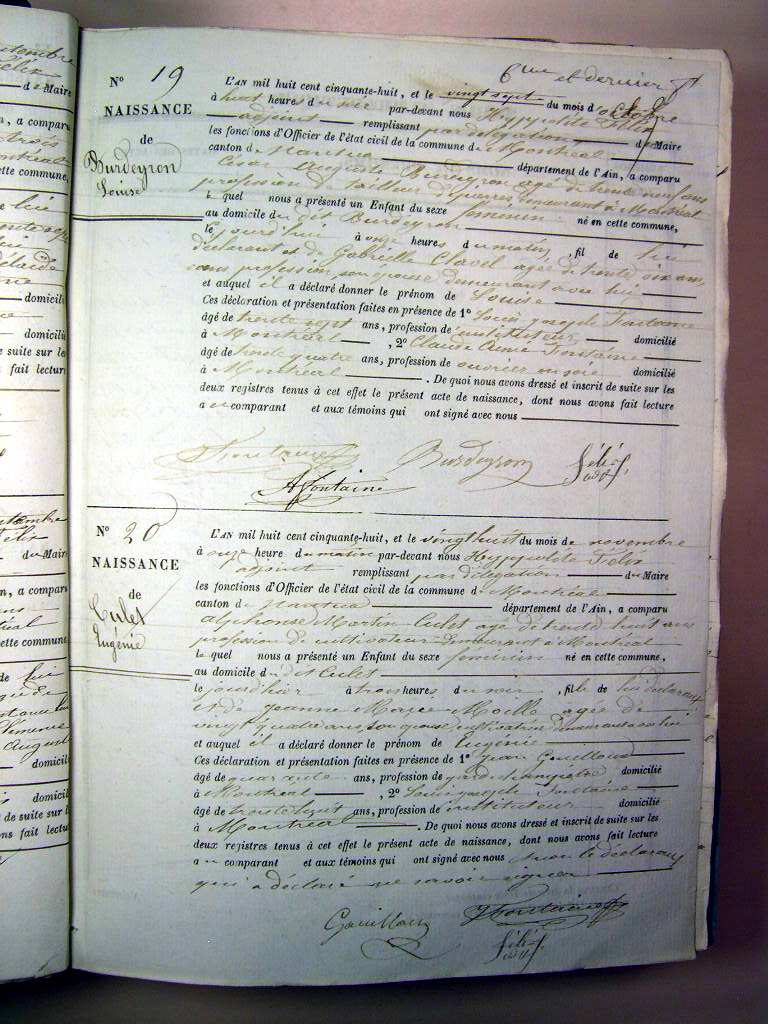 6me et dernier ft
N° 19
NAISSANCE
de
Burdeyron
Louise
L'AN mil huit cent cinquante-huit, et le vingt sept du mois d'octobre
à huit heures du soir par-devant nous Hyppolite Félix
adjoint remplissant par délégation du Maire
les fonctions d'Officier de l'état civil de la commune de Montréal
canton de Nantua département de l'Ain, a comparu
César Auguste Burdeyron agé de trente neuf ans
profession de tailleur de pierres demeurant à Montréal
le quel nous a présenté un Enfant du sexe féminin né en cette commune,
au domicile du dit Burdeyron
le jourd'hui à onze heures du matin, fil de lui
déclarant et de Gabrielle Clavel agée de trente six ans
sans profession, son épouse demeurant avec lui
et auquel il a déclaré donner le prénom de Louise
Ces déclaration et présentation faites en présence de 1° Louis joseph Fontaine
âgé de trente sept ans, profession de instituteur domicilié
à Montréal , 2° Claude Fontaine
âgé de trente quatre ans, profession de ouvrier en soie domicilié
à Montréal . De quoi nous avons dressé et inscrit de suite sur les
deux registres tenus à cet effet le présent acte de naissance, dont nous avons fait lecture
au comparant et aux témoins qui ont signé avec nous
Fontaine Burdeyron Félix
adjt
AFontaine
N° 20
NAISSANCE
de
Culet
Eugénie
L'AN mil huit cent cinquante-huit, et le vingt huit du mois de novembre
à onze heure du matin par-devant nous Hyppolite Félix
adjoint remplissant par délégation du Maire
les fonctions d'Officier de l'état civil de la commune de Montréal
canton de Nantua département de l'Ain, a comparu
alphonse Martin Culet agé de trente huit ans
profession de cultivateur demeurant à Montréal
le quel nous a présenté un Enfant du sexe féminin né en cette commune,
au domicile du dit Culet
le jour d'hier à trois heures du soir , fille de lui déclarant
et de jeanne Marie agée de
vingt quatre ans, son épouse cultivatrice demeurant avec lui
et auquel il a déclaré donner le prénom de Eugénie
Ces déclaration et présentation faites en présence de 1° jean Guilloud
âgé de quarante ans, profession de garde champêtre domicilié
à Montréal , 2° Louis joseph Fontaine
âgé de trente sept ans, profession de instituteur domicilié
à Montréal . De quoi nous avons dressé et inscrit de suite sur les
deux registres tenus à cet effet le présent acte de naissance, dont nous avons fait lecture
au comparant et aux témoins qui ont signé avec nous non le déclarant
qui a déclaré ne savoir signer
Fontaine
Félix
adjt